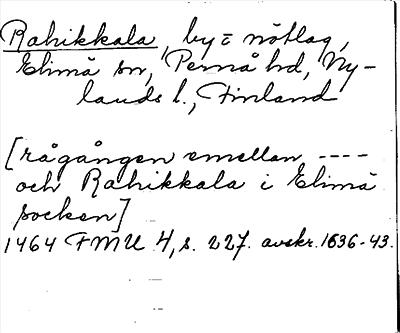 Rahikkala, by = nötlag,
Elimä sn, Pernå hd, Ny-
lands l., Finland
[rågången emellan ----
och Rahikkala i Elimä
socken]
1464 FMU 4, s. 227. avskr. 1636-43.